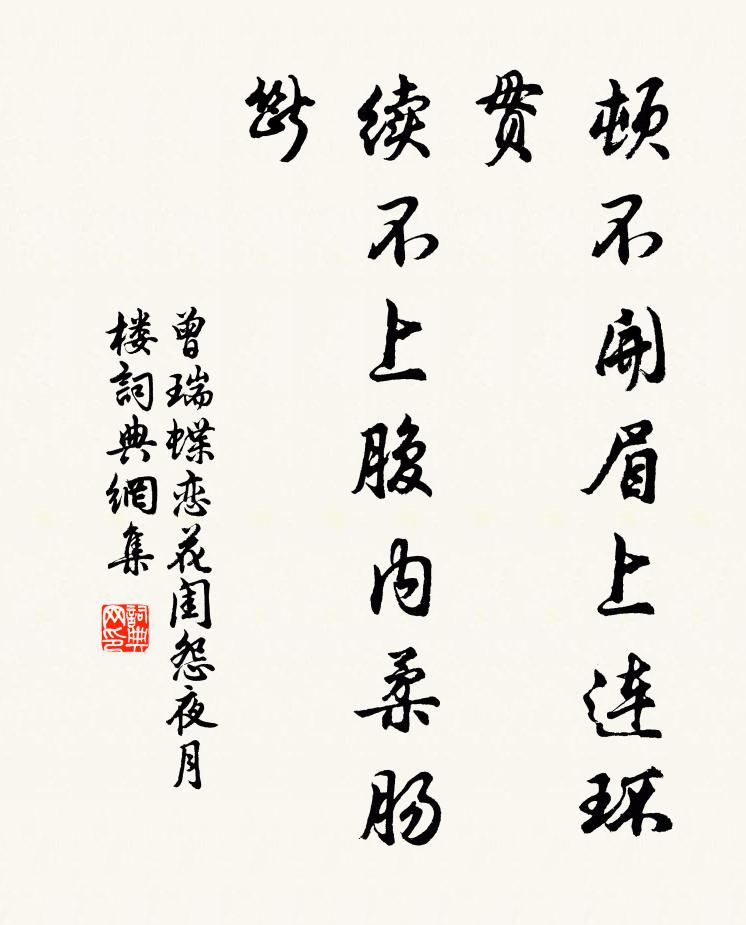 顿不開眉上连环
贯
续不上腹内柔肠
斷
曾瑞蝶恋花闺怨夜月
楼詞典網集
詞典
网印